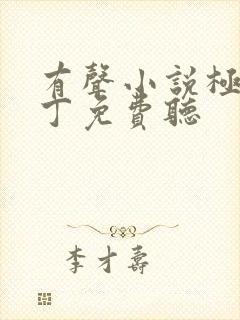 有聲小說極
丁免費聽
李才壽